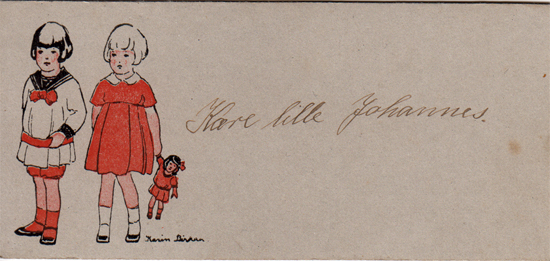 Kære lille Johannes.
Karin